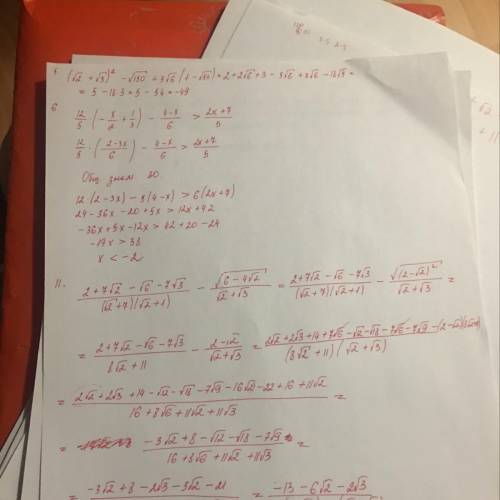 (√2 + √3)² - √150 + 3√6 (1 - √54) = 2 + 2√6 + 3 - 5√6 + 3√6 - 18√9 =
= 5 - 18·3 = 5 - 54 = -49
6
12/5 (-x/2 + 1/3) - (4-x)/6 > (2x+7)/5
12/5 · ((2-3x)/6) - (4-x)/6 > (2x+7)/5
Общ. знам. 30
12·(2-3x) - 5(4-x) > 6(2x+7)
24 - 36x - 20 + 5x > 12x + 42
-36x + 5x - 12x > 42 + 20 - 24
x < -2
11.
(2+7√2 - √6 - 7√3)/((√2+7)(√2+1)) - √(6-4√2)/(√2+√3) = (2+7√2 - √6 - 7√3)/((√2+7)(√2+1)) - √((2-√2)²)/(√2+√3) =
= (2+7√2 - √6 - 7√3)/(8√2 + 11) - (2-√2)/(√2+√3) =
= (2√2 + 2√3 + 14 - √12 - √18 - 7√9 - 16√2 - 22 + 16 + 11√2)/(16 + 8√6 + 11√2 + 11√3) =
= (-3√2 + 8 - √12 - √18 - 7√9)/(16 + 8√6 + 11√2 + 11√3) =
= (-3√2 + 8 - 2√3 - 3√2 - 21) = (-13 - 6√2 - 2√3)